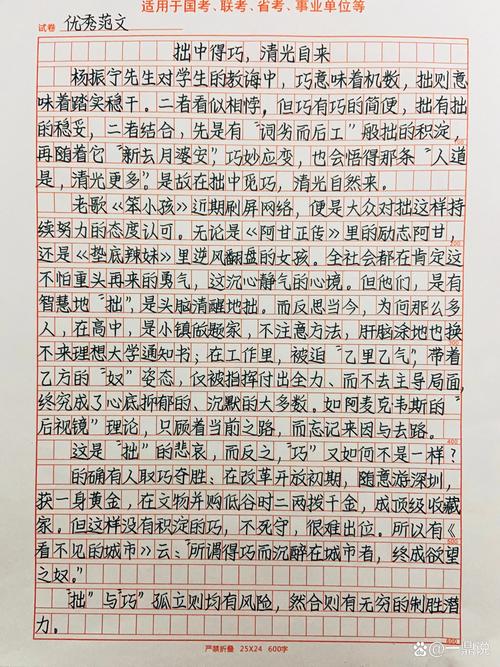 适用于国考、联考、省考、事业单位等
试卷 优秀范文
拙中得巧，清光自来
杨振宁先生对学生的教诲中，巧意味着机数，拙则意
味着踏实稳干。二者看似相悖，但巧有巧的简便，拙有拙
的稳妥，二者结合，先是有“词劣而后工”般拙的积淀，
再随着它“新去月婆安”，巧妙应变，也会悟得那条“人道
是，清光更多”。是故在拙中见巧，清光自然来。
老歌《笨小孩》近期刷屏网络，便是大众对拙这样持
续努力的态度认可。无论是《阿甘正传》里的励志阿甘，
还是《垫底辣妹》里逆风翻盘的女孩。全社会都在肯定这
不怕重头再来的勇气，这沉心静气的心境。但他们，是有
智慧地“拙”，是头脑清醒地拙。而反思当今，为何那么多
人，在高中，是小镇做题家，不注意方法，肝脑涂地也换
不来理想大学通知书；在工作里，被迫“乙里乙气”，带着
乙方的“奴”姿态，仅被指挥付出全力、而不去主导局面，
终究成了心底抑郁的、沉默的大多数。如阿麦克韦斯的“
后视镜”理论，只顾着当前之路，而忘记来因与去路。
这是“拙”的悲哀，而反之，“巧”又如何不是一样？
的确有人取巧夺胜、在改革开放初期，随意游深圳，
获一身黄金，在文物并购低谷时二两拨千金，成顶级收藏
家。但这样没有积淀的巧，不死守，很难出位。所以有《
看不见的城市》云：“所谓得巧而沉醉在城市者，终成欲望
之奴。”
“拙”与“巧”孤立则均有风险，然合则有无穷的制胜潜
力。
200
400
500
600
严禁折叠 25X24 600字
一鼎说